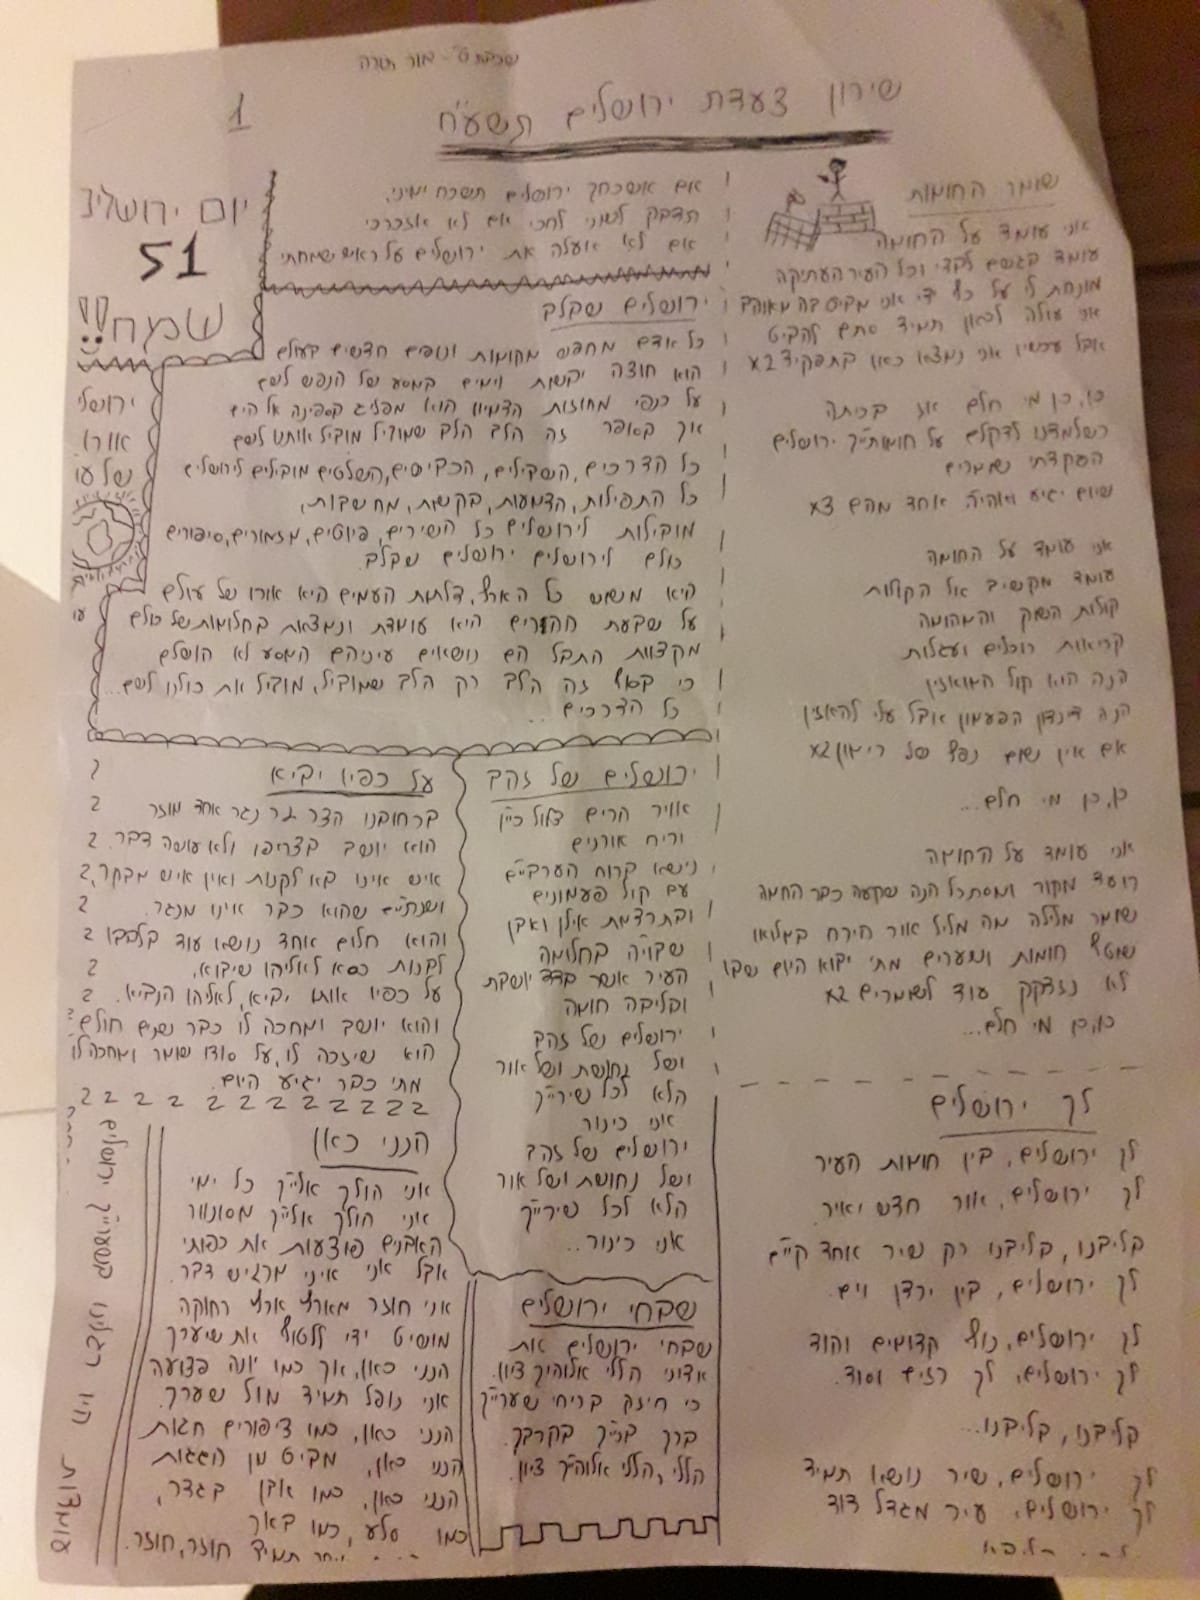 שכבת ט' - אור תורה
שירון צעדת ירושלים תשע"ח
1
שומר החומות
אני עומד על החומה
עומד בגשם לבדי וכל העיר העתיקה
מונחת לי על כף ידי אני מביט בה מאוהב
אני עולה לכאן תמיד סתם להביט
אבל עכשיו אני נמצא כאן בתפקיד x2
כן, כן מי חלם אז בכיתה
כשלמדנו לדקלם על חומותייך ירושלים
הפקדתי שומרים
שיום יגיע ואהיה אחד מהם x3
אני עומד על החומה
עומד מקשיב אל הקולות
קולות השוק והמהומה
קריאות רוכלים ועגלות
הנה הוא קול המואזין
הנה דינדון הפעמון אבל עלי להאזין
אם אין שום נפץ של רימון x2
כן, כן מי חלם...
אני עומד על החומה
רועד מקור ומסתכל הנה שקעה כבר החמה
שומר מלילה מה מליל אור הירח במלואו
שוטף חומות ושערים מתי יבוא היום שבו
לא נזדקק עוד לשומרים x2
כן, כן מי חלם...
לך ירושלים
לך ירושלים, בין חומות העיר
לך ירושלים, אור חדש יאיר.
בליבנו, בליבנו רק שיר אחד קיים
לך ירושלים, בין ירדן וים.
לך ירושלים, נוף קדומים והוד
לך ירושלים, לך רזים וסוד.
בליבנו, בליבנו...
לך ירושלים, שיר נושא תמיד
לך ירושלים, עיר מגדל דוד
אם אשכחך ירושלים תשכח ימיני,
תדבק לשוני לחכי אם לא אזכרכי
אם לא אעלה את ירושלים על ראש שמחתי
ירושלים שבלב
כל אדם מחפש מקומות ונופים חדשים בעולם
הוא חוצה יבשות וימים במסע של הנפש לשם
על כנפי מחוזות הדמיון הוא מפליג בספינה אל הים
אך בסופו זה הלב הלב שמוביל מוביל אותנו לשם
כל הדרכים, השבילים, הכבישים, השלטים מובילים לירושלים
כל התפילות, הדמעות, בקשות, מחשבות,
מובילות לירושלים כל השירים, פיוטים, מזמורים, סיפורים
כולם לירושלים ירושלים שבלב.
היא משוש כל הארץ, דלתות העמים היא אורו של עולם
על שבעת ההרים היא עומדת ונמצאת בחלומות של כולם
מקצוות התבל הם נושאים עיניהם המסע לא הושלם
כי בסוף זה הלב רק הלב שמוביל, מוביל את כולנו לשם...
כל הדרכים...
יום ירושלים
51
שמח!!
ירושלי
אורו
של עו
ירושלים של זהב
אוויר הרים צלול כיין
וריח אורנים
נישא ברוח הערביים
עם קול פעמונים
ובתרדמת אילן ואבן
שבויה בחלומה
העיר אשר בדד יושבת
ובליבה חומה
ירושלים של זהב
ושל נחושת ושל אור
הלא לכל שירייך
אני כינור
ירושלים של זהב
ושל נחושת ושל אור
הלא לכל שירייך
אני כינור..
שבחי ירושלים
שבחי ירושלים את
אדוני הללי אלוהיך ציון.
כי חיזק בריחי שערייך
ברך בנייך בקרבך.
הללי, הללי אלוהייך ציון.
על כפיו יביא
ברחובנו הצר גר נגר אחד מוזר
הוא יושב בצריפו ולא עושה דבר.
איש אינו בא לקנות ואין איש מבקר,
ושנתיים שהוא כבר אינו מנגר.
והוא חלום אחד נושא עוד בלבבו
לבנות כסא לאליהו שיבוא,
על כפיו אותו יביא, לאליהו הנביא.
והוא יושב ומחכה לו כבר שנים חולם
הוא שיזכה לו, על סודו שומר ומחכה לו
מתי כבר יגיע היום.
הנני כאן
אני הולך אלייך כל ימי
אני הולך אלייך מסונוור
האבנים פוצעות את כפותי
אבל אני איני מרגיש דבר.
אני חוזר מארץ ארץ רחוקה
מושיט ידי ללטף את שיערך
הנני כאן, אך כמו יונה פצועה
אני נופל תמיד מול שערך.
הנני כאן, כמו ציפורים חגות
הנני כאן, מביט מן הגגות
הנני כאן, כמו אבן בגדר,
כמו סלע, כמו באר
תמיד חוזר, חוזר.